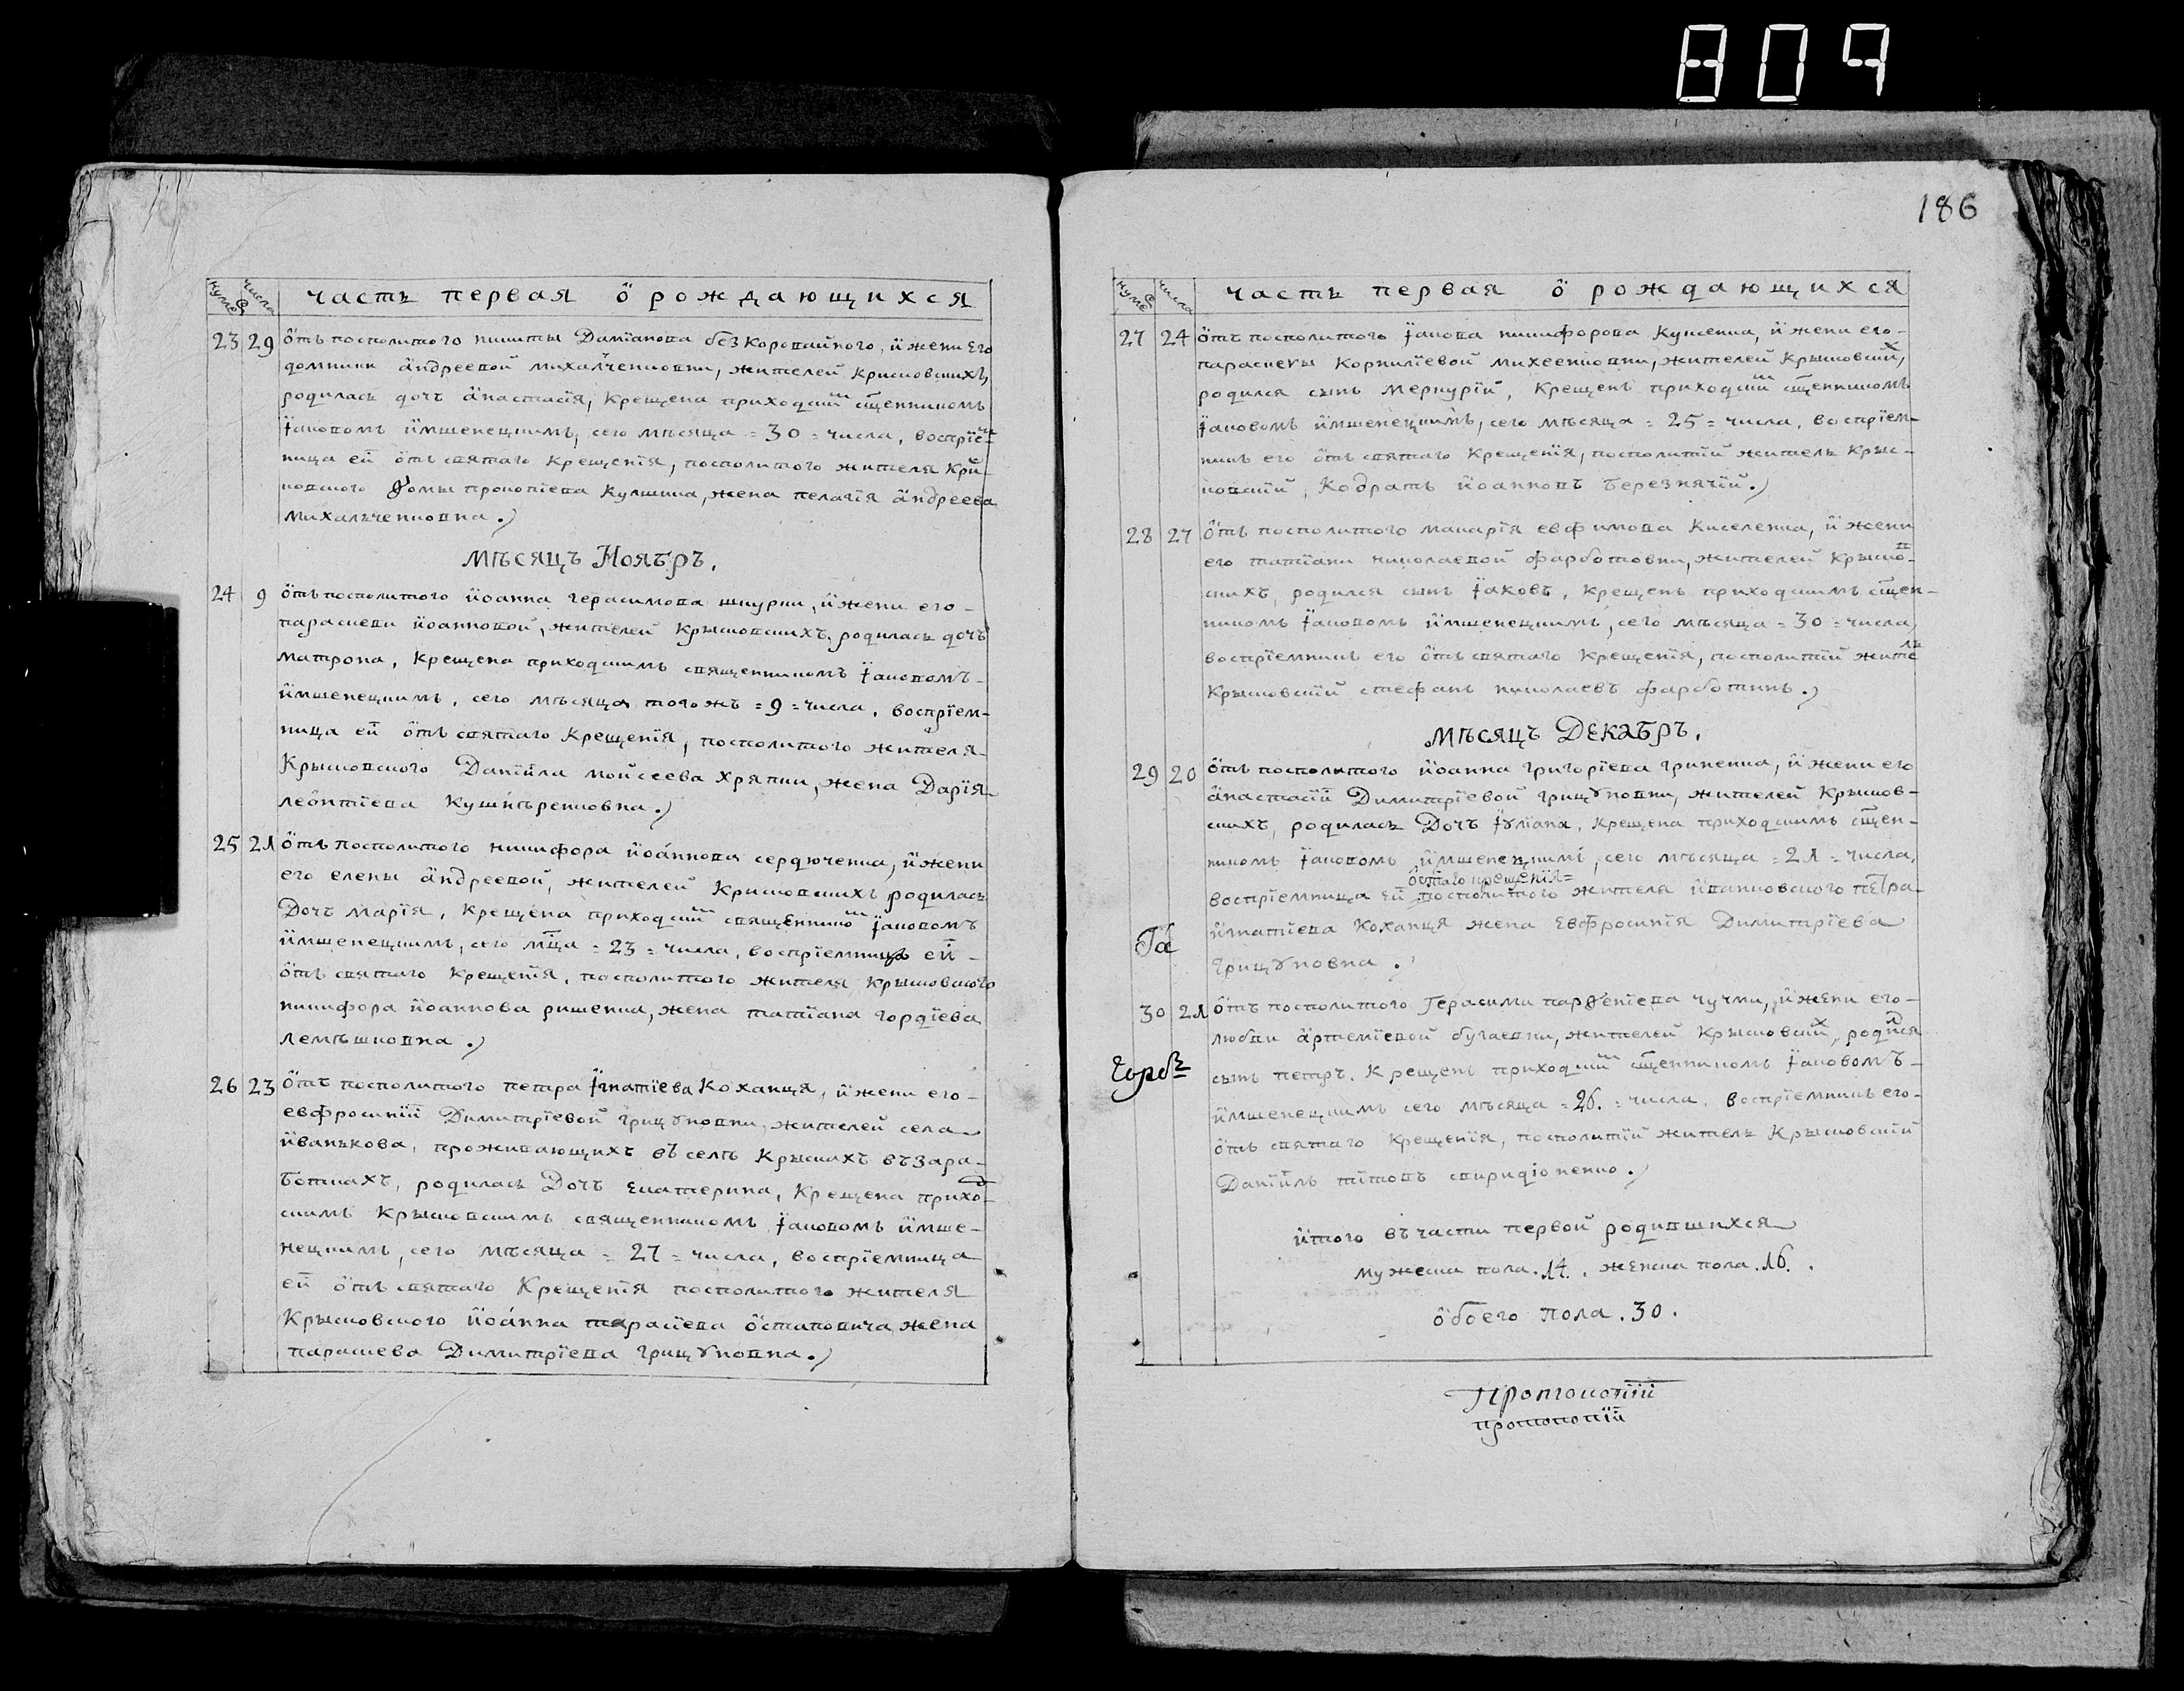 809
186
часть первая ӧ рождающихся
23 29 ӧтъ посполитого никиты Даміанова безкоровайного, и жени Его
домники андреевой михалченковни, жителей крисковскихъ,
родилась дочъ анастасія, крещена приходскимъ сщенникомъ
іаковомъ имшенецкимъ, сего мѣсяца = 30 = числа, воспріем-
ница ей ӧтъ святаго крещенія, посполитого жителя кри-
ковского Ѳомы прокопіева кулшика, жена пелагія андреева
михалъченковна.
мѣсяцъ Ноябръ.
24 9 ӧтъ посполитого иоанна герасимова шкурки, и жени его-
параскеви иоанновой, жителей крысковскихъ, родилась дочъ
матрона, крещена приходскимъ священникомъ іаковомъ-
имшенецкимъ, сего мѣсяца тогожъ = 9 = числа, воспріем-
ница ей ӧтъ святаго крещенія, посполитого жителя-
крысковского Даніила моисеева хряпки, жена Дарія
леӧнтіева кушнѣренковна.
25 21 ӧтъ посполитого никифора иоаннова сердюченка, и жени
его елены андреевой, жителей крисковскихъ родилась
Дочъ марія, крещена приходским священником іаковомъ
имшенецкимъ, сего мца = 23 = числа, воспріемница ей-
ӧтъ святаго крещенія, посполитого жителя крысковского
никифора иоаннова ришенка, жена татіана гордіева
лемѣшковна.
26 23 ӧтъ посполитого петра ігнатіева коханця, и жени его-
евфросиніи Димитріевой грицуковни, жителей села
иванькова, проживающихъ въ селѣ крыскахъ въ зара-
боткахъ, родилась Дочъ екатерина, крещена приход-
скимъ крысковскимъ священникомъ іаковомъ имше-
нецкимъ, сего мѣсяца = 27 = числа, воспріемница
ей ӧтъ святаго крещенія посполитого жителя
крысковского иоанна тарасіева ӧстаповича жена
параскева Димитріева грицуковна.
часть первая ӧ рождающихся
27 24 ӧтъ посполитого іакова никифорова куженка, и жени его-
параскевы корниліевой михеенковни, жителей крысковских,
родился сынъ меркурій, крещенъ приходским сщенникомъ
іаковомъ имшенецкимъ, сего мѣсяца = 25 = числа, воспріем-
никъ его ӧтъ святаго крещенія, посполитій жителъ крыс-
ковскій, кодратъ иоанновъ березнячій.
28 27 ӧтъ посполитого макарія евфимова киселенка, и жени
его татіани николаевой фарботовни, жителей крысков-
скихъ, родился сынъ іаковъ, крещенъ приходскимъ сщен-
никомъ іаковомъ имшенецкимъ, сего мѣсяца = 30 = числа,
воспріемникъ его ӧтъ святаго крещенія, посполитій жителъ
крысковскій стефанъ николаевъ фарботинъ.
мѣсяцъ Декабръ.
29 20 ӧтъ посполитого иоанна григоріева гриненка, и жени его
анастасіи Димитріевой грицуковни, жителей крысков-
скихъ, родилась Дочъ іуліана, крещена приходскимъ сщен-
никомъ іаковомъ имшенецкимъ, сего мѣсяца = 21 = числа,
ӧ стаго крещенія =
воспріемница ей посполитого жителя иванковского петра-
игнатіева коханця жена Евфросинія Димитріева
грицуковна.
30 21 ӧтъ посполитого Герасима парѳеніева чучми, и жени его-
любви артеміевой бугаевни, жителей крысковских, родился
сынъ петръ. крещенъ приходским сщенникомъ іаковомъ-
имшенецкимъ сего мѣсяца = 26. = числа, воспріемникъ его-
ӧтъ святаго крещенія, посполитій жителъ крысковскій
Даніилъ титовъ спиридіоненко.
итого въ части первой родившихся
мужеска пола. 14. , женска пола. 16. .
ӧбоего пола. 30.
протопопіи